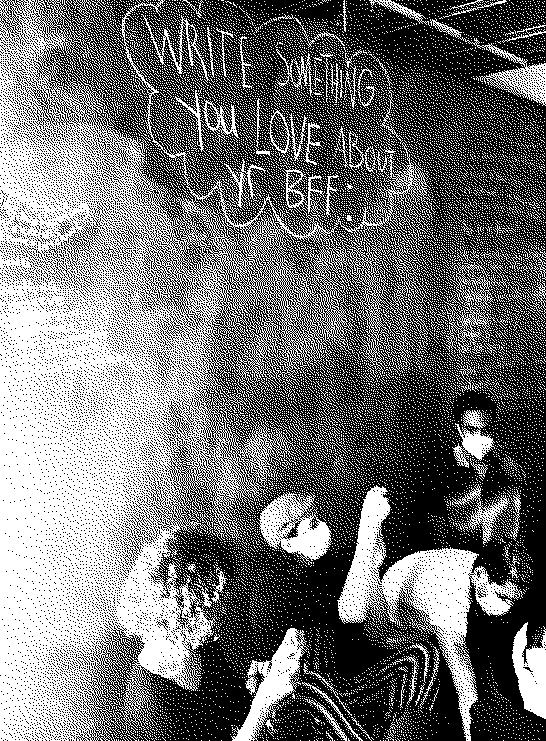 WRITE SOMETHING
You LOVE ABOUT
Yr BFF: